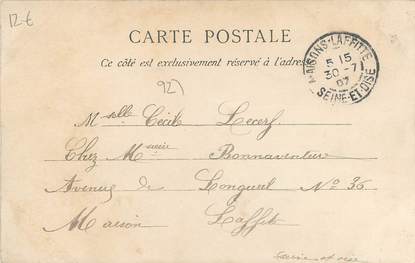 12 €
CARTE POSTALE
Ce côté est exclusivement réservé à l'adresse
MAISONS-LAFFITTE
5 15
30 -7
07
SEINE-ET-OISE
927
Mselle Cécile Lecerf
Chez Bonnaventure
Avenue de Longueil No 36
Maison Laffite
Seine et oise